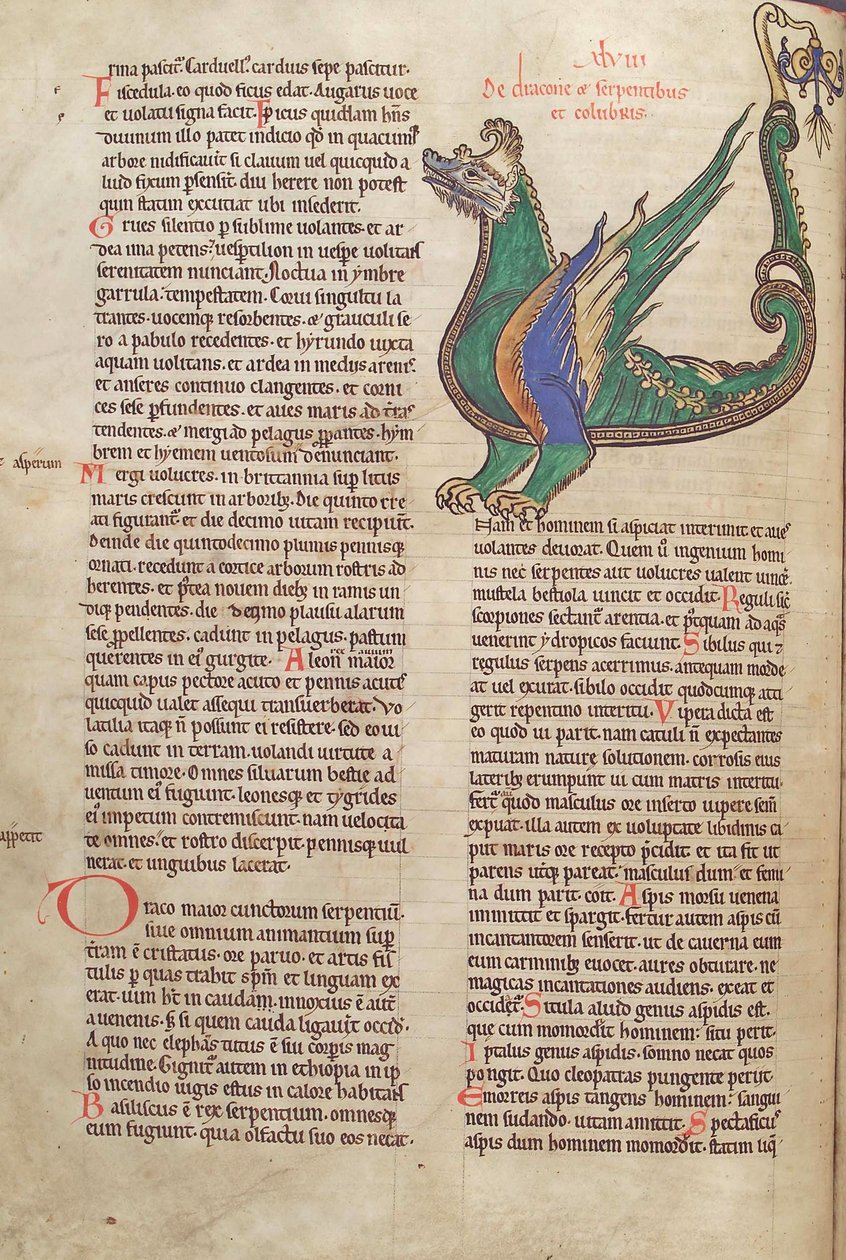 rina pascit᷑. Carduell᷑. carduis sepe pascitur.
Fiscedula. eo quod ficus edat. Augarus uoce
et uolatu signa facit. Picus quiddam hñs
diuinum illo patet indicio qd̄ in quacumq
arbore nidificauit si clauum uel quicquid a
liud fixum ꝑsensit. diu herere non potest
quin statim excutiat ubi insederit.
Grues silentio ꝑ sublime uolantes. et ar
dea ima petens. uesꝑtilion in uesꝑe uolitans
serenitatem nunciant. Noctua in ymbre
garrula. tempestatem. Corui singultu la
trantes. uocemq resorbentes. & grauculi se
ro a pabulo recedentes. et hyrundo iuxta
aquam uolitans. et ardea in medijs arenis.
et anseres continuo clangentes. et corni
ces sese ꝑfundentes. et aues maris ad tr̄as
tendentes. & mergi ad pelagus ꝓꝑantes. hym
brem et hyemem uentosum denunciant.
asperum
Mergi uolucres. in brittannia sup̄ litus
maris crescunt in arborib;. Die quinto cre
ati figurant᷑. et die decimo uitam recipiunt.
Deinde die quintodecimo plumis pennisq
ornati. recedunt a cortice arborum rostris ad
herentes. et p᷑tea nouem dieb; in ramis un
diq pendentes. die decimo plausu alarum
sese ꝓpellentes. cadunt in pelagus. pastum
querentes in ei᷒ gurgite. Aleon maior
quam capus pectore acuto et pennis acutis
quicquid ualet assequi transuerberat. Vo
latilia itaq n̄ possunt ei resistere. sed eo ui
so cadunt in terram. uolandi uirtute a
missa timore. Omnes siluarum bestie ad
uentum ei᷒ fugiunt. leonesq et tygrides
ei᷒ impetum contremiscunt. nam uelocita
te omnes. et rostro discerpit. pennisq uul
nerat. et unguibus lacerat.
appetit
Draco maior cunctorum serpentiū.
siue omnium animantium sup̄
tr̄am ē cristatus. ore paruo. et artis fis
tulis ꝑ quas trahit sp̄m et linguam ex
erat. uim ht̄ in caudam. innoxius ē aut̄
a uenenis. s; si quem cauda ligauerit occid᷑.
A quo nec elephas tutus ē sui corꝑis mag
nitudine. Gignit᷑ autem in ethiopia in ip̄
so incendio iugis estus in calore habitans
Basiliscus ē rex serpentium. omnesq
eum fugiunt. quia olfactu suo eos necat.
xlviii
De dracone & serpentibus
et colubris.
Nam et hominem si aspiciat interimit et aues
uolantes deuorat. Quem u᷒ ingenium homi
nis nec serpentes aut uolucres ualent uincere.
mustela bestiola uincit et occidit. Reguli sic̄
scorpiones sectant᷑ arentia. et p᷑tquam ad aqs
uenerint ydropicos faciunt. Sibilus qui ⁊
regulus serpens acerrimus. antequam morde
at uel exurat. sibilo occidit quodcumq atti
gerit repentino interitu. Vipera dicta est
eo quod ui parit. nam catuli n̄ expectantes
maturam nature solutionem. corrosis eius
laterib; erumpunt ui cum matris interitu.
fert᷑ aut̄ quod masculus ore inserto uipere sem̄
expuat. illa autem ex uoluptate libidinis ca
put maris ore recepto p̄cidit. et ita fit ut
parens uterq pareat. masculus dum et femi
na dum parit. coit. Aspis morsu uenena
inmittit et spargit. fertur autem aspis cū
incantantorem senserit. ut de cauerna eum
eum carminib; euocet. aures obturare. ne
magicas incantationes audiens. exeat et
occidet᷑. Situla aliud genus aspidis est.
que cum momordit hominem: siti perit.
Iptalus genus aspidis. somno necat quos
pongit. Quo cleopatras pungente periit.
Emorreis aspis tangens hominem: sangui
nem sudando. uitam amittit. Spectaficus
aspis dum hominem momordit. statim liq̄